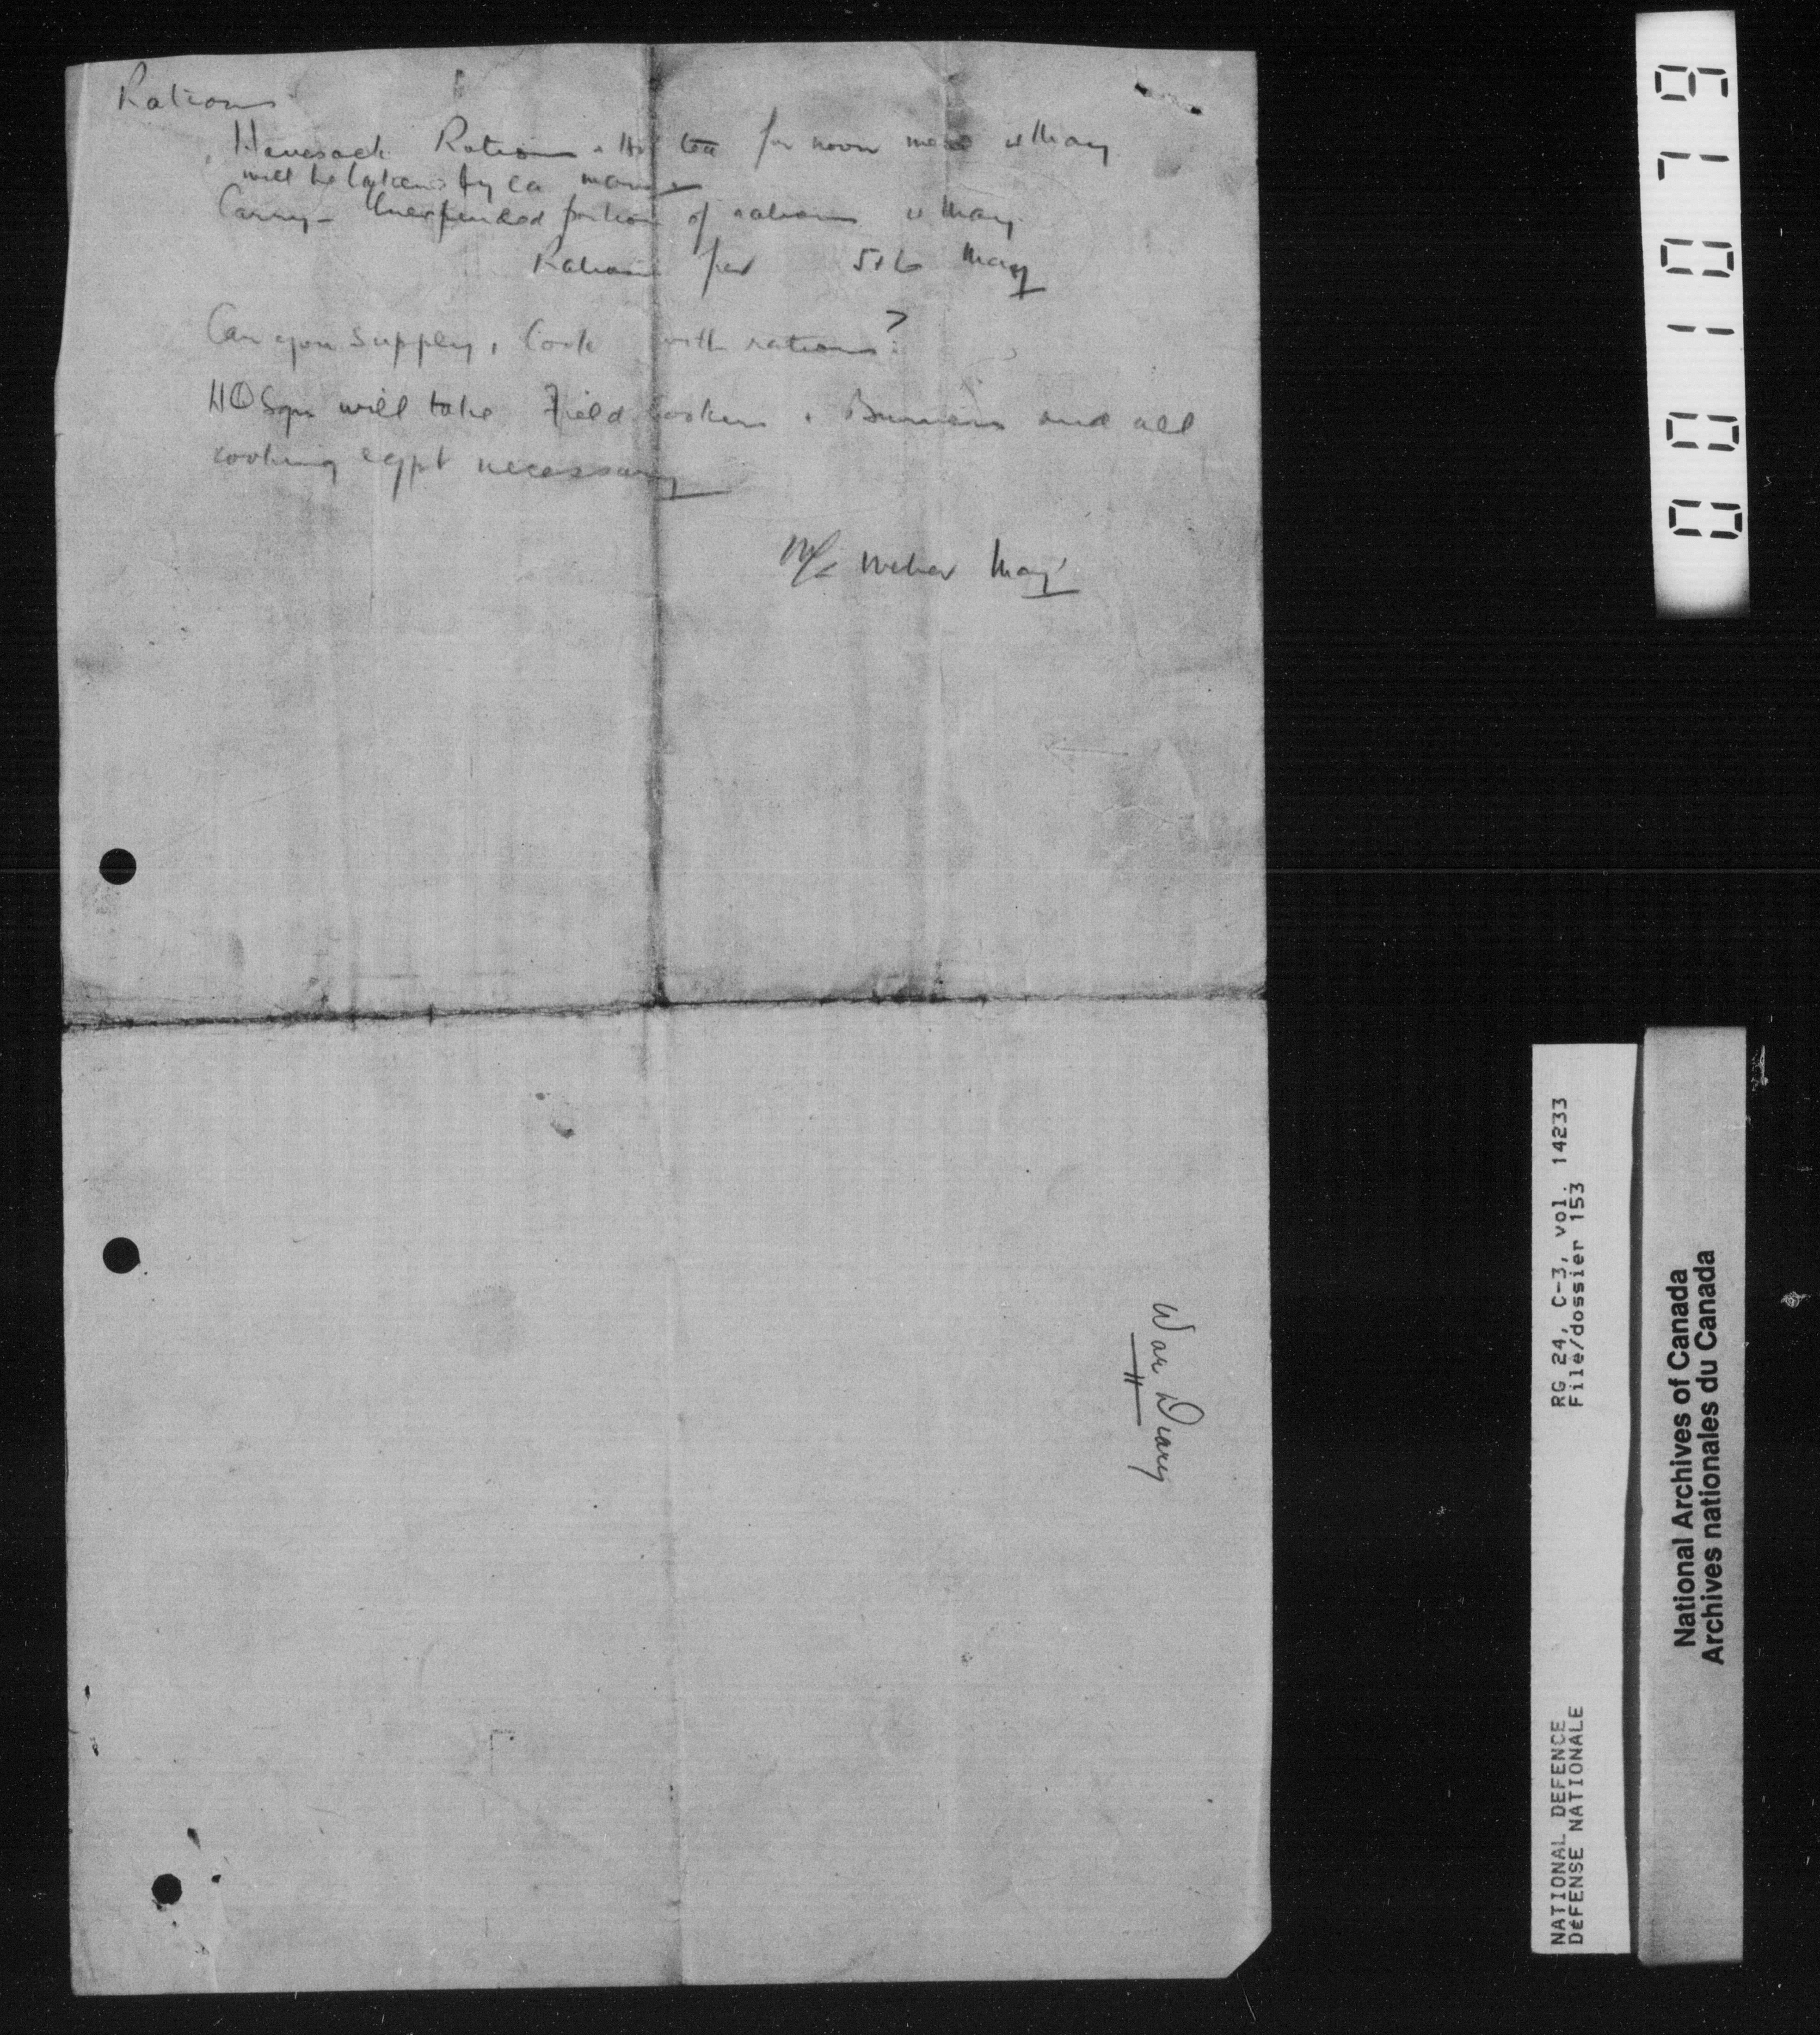 Rations
Haversack Rations & Hot tea for noon meal 4 May
will be taken by ea man
Carry - Unexpended portion of rations 4 May
Rations for 5 & 6 May
Can you supply 1 Cook with rations?
HQ Sqn will take Field Cookers & Burners and all
cooking eqpt necessary
Weber Maj
War Diary
0001079
RG 24, C-3, vol. 14233
File/dossier 153
NATIONAL DEFENCE
DéFENSE NATIONALE
National Archives of Canada
Archives nationales du Canada